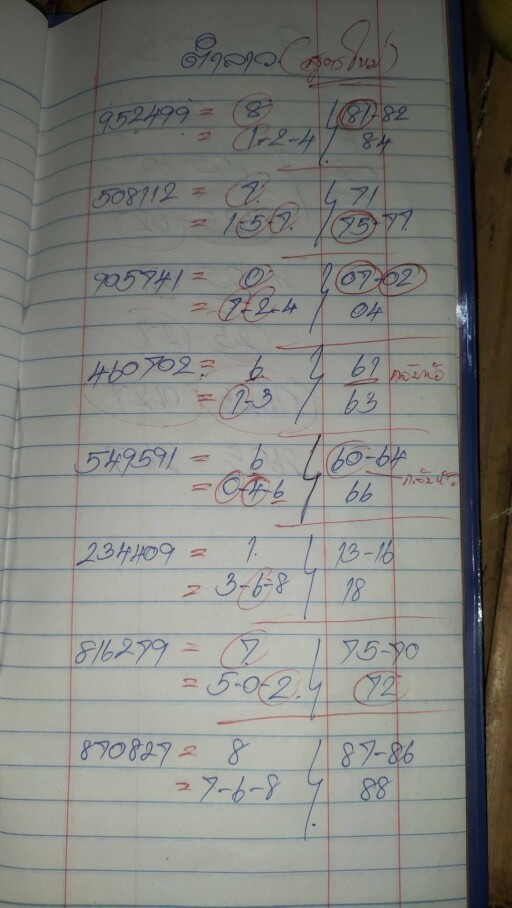 ตำลาว (สูตรใหม่)
952499 = 8 / 81-82
= 1-2-4 / 84
508112 = 7. / 71
= 1-5-7. / 75-77
905741 = 0. / 07-02
= 7-2-4 / 04
460702 = 6 / 61 กลับหัว
= 1-3 / 63
549591 = 6 / 60-64
= 0-4-6 / 66
234409 = 1. / 13-16
= 3-6-8 / 18
816279 = 7. / 75-70
= 5-0-2. / 72
870827 = 8 / 87-86
= 7-6-8 / 88